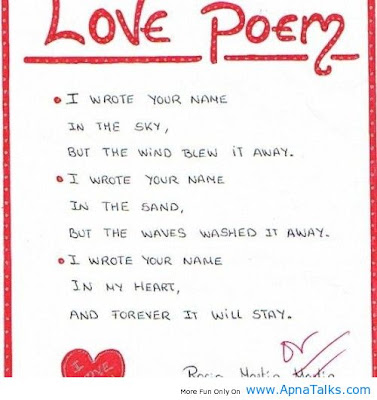 LOVE POEM
• I WROTE YOUR NAME
IN THE SKY,
BUT THE WIND BLEW IT AWAY.
• I WROTE YOUR NAME
IN THE SAND,
BUT THE WAVES WASHED IT AWAY.
• I WROTE YOUR NAME
IN MY HEART,
AND FOREVER IT WILL STAY.
I LOVE
More Fun Only On www.ApnaTalks.com